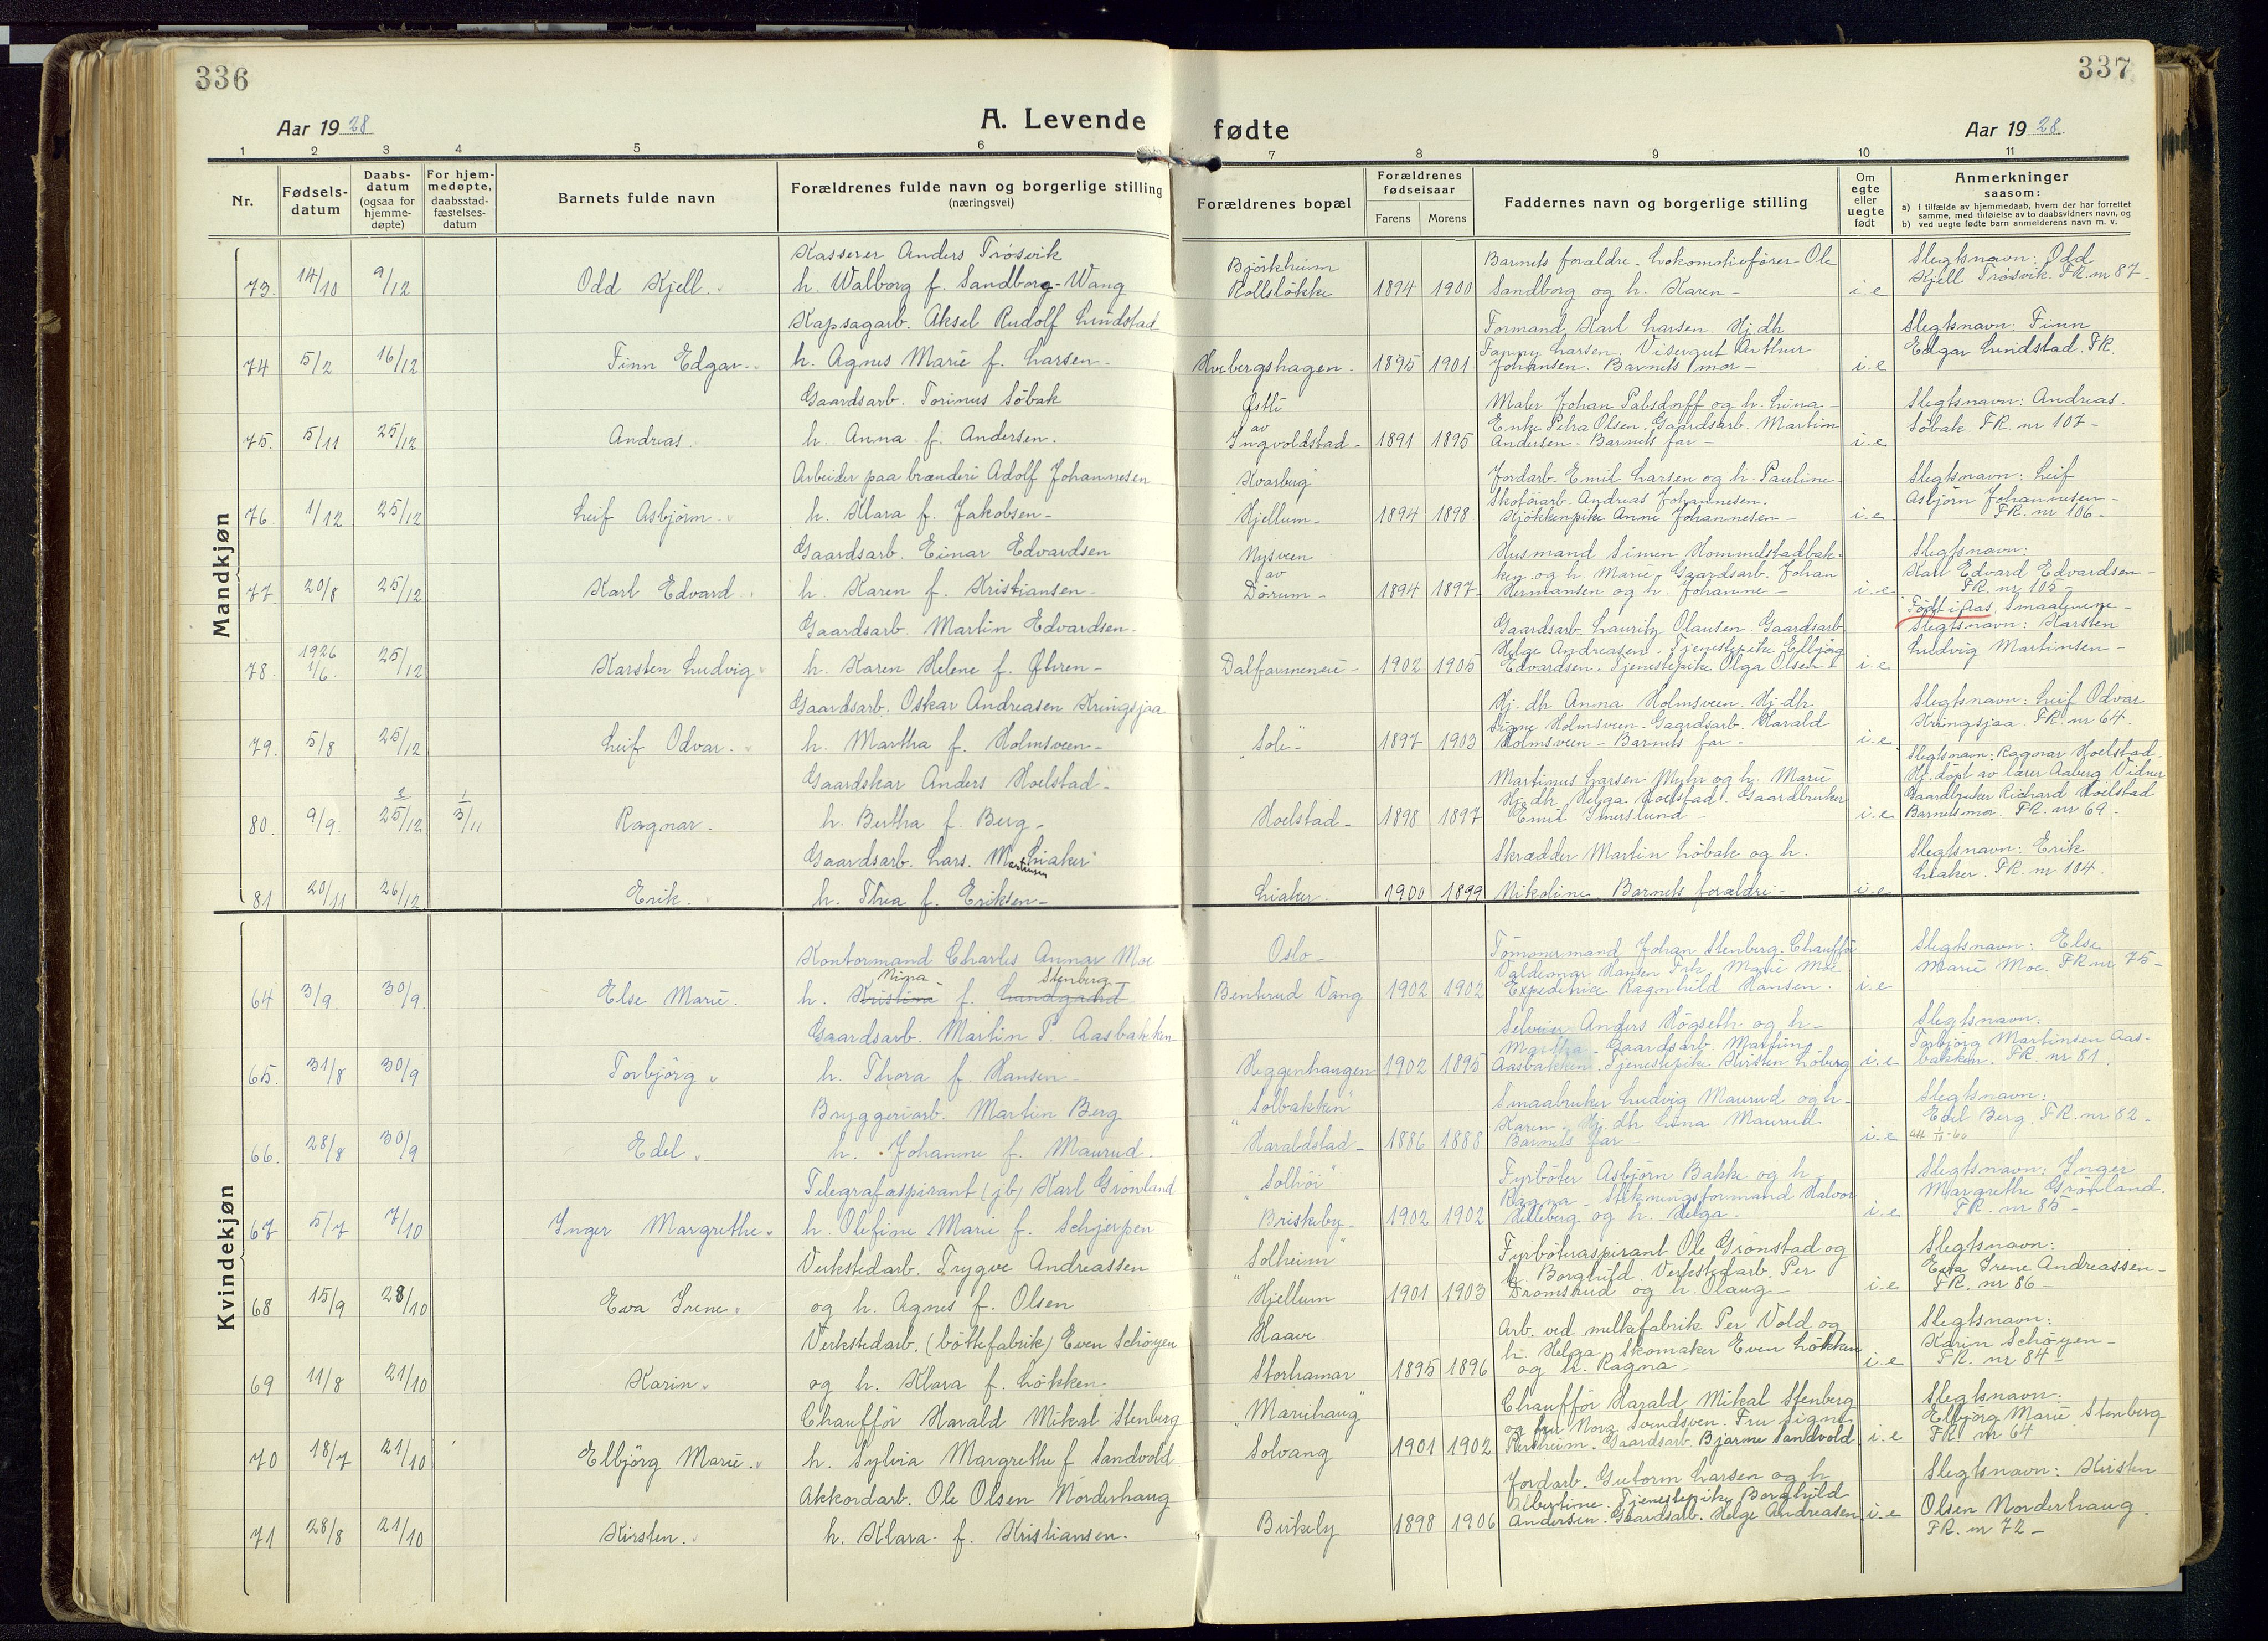 336
337
Aar 1928
A. Levende fødte
Aar 1928.
1 2 3 4 5 6 7 8 9 10 11
Nr.
Fødsels-datum
Daabs-datum (ogsaa for hjemme-døpte)
For hjem-medøpte, daabsstad-fæstelses-datum
Barnets fulde navn
Forældrenes fulde navn og borgerlige stilling (næringsvei)
Forældrenes bopæl
Forældrenes fødselsaar
Farens Morens
Faddernes navn og borgerlige stilling
Om egte eller uegte født
Anmerkninger saasom:
a) i tilfælde av hjemmedaab, hvem der har forrettet samme, med tilføielse av to daabsvidners navn, og
b) ved uegte fødte barn anmelderens navn m. v.
Mandkjøn
73. 14/10 9/12 Odd Kjell.
Kasserer Anders Trøsvik
h. Walborg f. Sandborg-Wang
Björkheim
Rollsløkke 1894 1900
Barnets forældre. Lokomotivfører Ole
Sandborg og h. Karen-
i.e
Slegtsnavn: Odd
Kjell Trøsvik. FR. nr 87-
74 5/2 16/12 Finn Edgar.
Kapsagarb. Aksel Rudolf Lundstad
h. Agnes Marie f. Larsen-
Hvebergshagen- 1895 1901
Formand Karl Larsen. Hj.dtr
Fanny Larsen. Visergut Arthur
Johansen. Barnets mor-
i.e
Slegtsnavn: Finn
Edgar Lundstad. FR.
75. 5/11 25/12 Andreas.
Gaardsarb. Torinus Løbak
h. Anna f. Andersen.
Østli
av
Ingvoldstad- 1891 1895
Maler Johan Palsdorff og h. Lina-
Enke Petra Olsen. Gaardsarb. Martin
Andersen- Barnets far-
i.e
Slegtsnavn: Andreas.
Løbak. FR. nr 107-
76. 1/12 25/12 Leif Asbjørn.
Arbeider paa brænderi Adolf Johannesen
h. Klara f. Jakobsen-
"Kvarberg"
Hjellum- 1894 1898
Jordarb. Emil Larsen og h. Pauline
Skotøiarb. Andreas Johannesen.
Kjøkkenpike Anne Johannesen-
i.e
Slegtsnavn: Leif
Asbjørn Johannesen-
FR. nr 106-
77. 20/8 25/12 Karl Edvard.
Gaardsarb. Einar Edvardsen
h. Karen f. Kristiansen-
Nysveen
av
Dørum- 1894 1897-
Husmand Simen Hommelstadbak-
ken og h. Marie, Gaardsarb. Johan
Hermansen og h. Johanne-
i.e
Slegtsnavn:
Karl Edvard Edvardsen-
FR. nr 105-
78. 1926 1/6. 25/12 Karsten Ludvig.
Gaardsarb. Martin Edvardsen.
h. Karen Helene f. Øhren-
Dalfarmeneie- 1902 1905
Gaardsarb. Lauritz Olausen. Gaardsarb
Helge Andreasen- Tjenestepike Elbjørg
Edvardsen. Tjenestepike Olga Olsen-
i.e
Født i Aas, Smaalenene-
Slegtsnavn: Karsten
Ludvig Martinsen-
79. 5/8 25/12 Leif Odvar.
Gaardsarb. Oskar Andreasen Kringsjaa
h. Martha f. Holmsveen-
"Sole-" 1897 1903
Hj. dtr Anna Holmsveen. Hj.dtr
Signe Holmsveen-Gaardsarb. Harald
Holmsveen- Barnets far-
i.e
Slegtsnavn: Leif Odvar
Kringsjaa. FR. nr 64.
80. 9/9. 2 25/12 1 3/11 Ragnar.
Gaardskar Anders Hoelstad-
h. Bertha f. Berg-
Hoelstad- 1898 1897
Martinus Larsen Myhr og h. Marie
Hj.dtr Helga Hoelstad. Gaardbruker
Emil Imerslund-
i.e
Slegtsnavn: Ragnar Hoelstad-
Hj.døpt av lærer Aaberg Vidner
Gaardbruker Richard Hoelstad
Barnets mor. FR. nr 69.
81 20/11 26/12 Erik.
Gaardsarb. Lars. Martinsen Liaker
h. Thea f. Eriksen-
Liaker. 1900 1899
Skrædder Martin Løbak og h.
Nikoline. Barnets forældre-
i.e
Slegtsnavn: Erik
Liaker. FR. nr 104.
Kvindekjøn
64 3/9. 30/9. Else Marie.
Kontormand Charles Annar Moe
Nina Stenberg
h. Kristine f. Lundgaard
Oslo-
Benterud Vang 1902 1902
Tømmermand Johan Stenberg. Chauffør
Valdemar Hansen Frk. Marie Moe-
Expeditrice Ragnhild Hansen.
i.e
Slegtsnavn: Else
Marie Moe. FR nr 75-
65. 31/8 30/9 Torbjørg.
Gaardsarb. Martin P. Aasbakken
h. Thora f. Hansen-
Heggenhaugen 1902 1895
Selveier Anders Høgseth og h-
Martha- Gaardsarb. Martin
Aasbakken. Tjenestepike Kirsten Løberg
i.e
Slegtsnavn:
Torbjørg Martinsen Aas-
bakken. FR. nr 81.
66. 28/8 30/9 Edel.
Bryggeriarb. Martin Berg
h. Johanne f. Maurud.
"Solbakken"
Haraldstad- 1886 1888
Smaabruker Ludvig Maurud og h-
Karen- Hj.dtr Lina Maurud
Barnets far-
i.e
Slegtsnavn:
Edel Berg. FR. nr 82-
67 5/7 7/10 Inger Margrethe.
Telegrafaspirant (jb) Karl Grønland
h. Olefine Marie f. Schjerpen
"Solhöi"
Briskeby- 1902 1902
Fyrbøter Asbjørn Bakke og h.
Ragna- Strekningsformand Halvor
Helleberg og h. Helga-
i.e
Slegtsnavn: Inger
Margrethe Grønland.
FR. nr 85-
68 15/9 28/10 Eva Irene.
Verkstedarb. Trygve Andreassen
og h. Agnes f. Olsen
"Solheim"
Hjellum 1901 1903
Fyrbøteraspirant Ole Grønstad og
h. Borghild. Verkstedarb. Per
Dromsrud og h. Olaug-
i.e
Slegtsnavn:
Eva Irene Andreassen-
FR. nr 86-
69 11/8 21/10 Karin.
Verkstedarb. (bøttefabrik) Even Schøyen
og h. Klara f. Løkken.
Haave
Storhamar 1895 1896
Arb. ved melkefabrik Per Vold og
h. Helga- Skomaker Even Løkken
og h. Ragna-
i.e
Slegtsnavn:
Karin Schøyen-
FR. nr 84-
70 18/7 21/10 Elbjørg Marie.
Chauffør Harald Mikal Stenberg
h. Sylvia Margrethe f Sandvold
"Mariehaug"
Solvang 1901 1902
Chauffør Harald Mikal Stenberg
og fru Norg Svendsven. Fru Signe
Gaardsarb. Bjarne Sandvold
i.e
Slegtsnavn:
Elbjørg Marie Stenberg
FR. nr 64
71 28/8 21/10 Kirsten.
Akkordarb. Ole Olsen Norderhaug
h. Klara f. Kristiansen.
Birkely 1898 1906
Jordarb. Gutorm Larsen og h.
Albertine. Tjenestepike Borghild
Andersen. Gaardsarb. Helge Andreasen
i.e
Slegtsnavn: Kirsten
Olsen Norderhaug.
FR. nr 72-